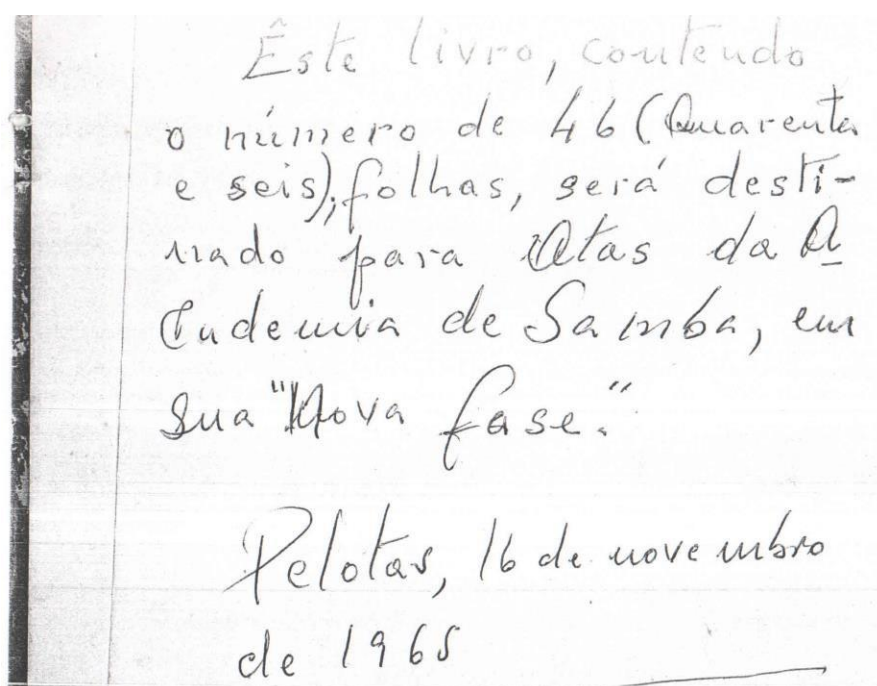 Êste livro, contendo
o número de 46 (Quarenta
e seis), folhas, será desti-
nado para Atas da A
cademia de Samba, em
sua "Nova fase".
Pelotas, 16 de novembro
de 1965